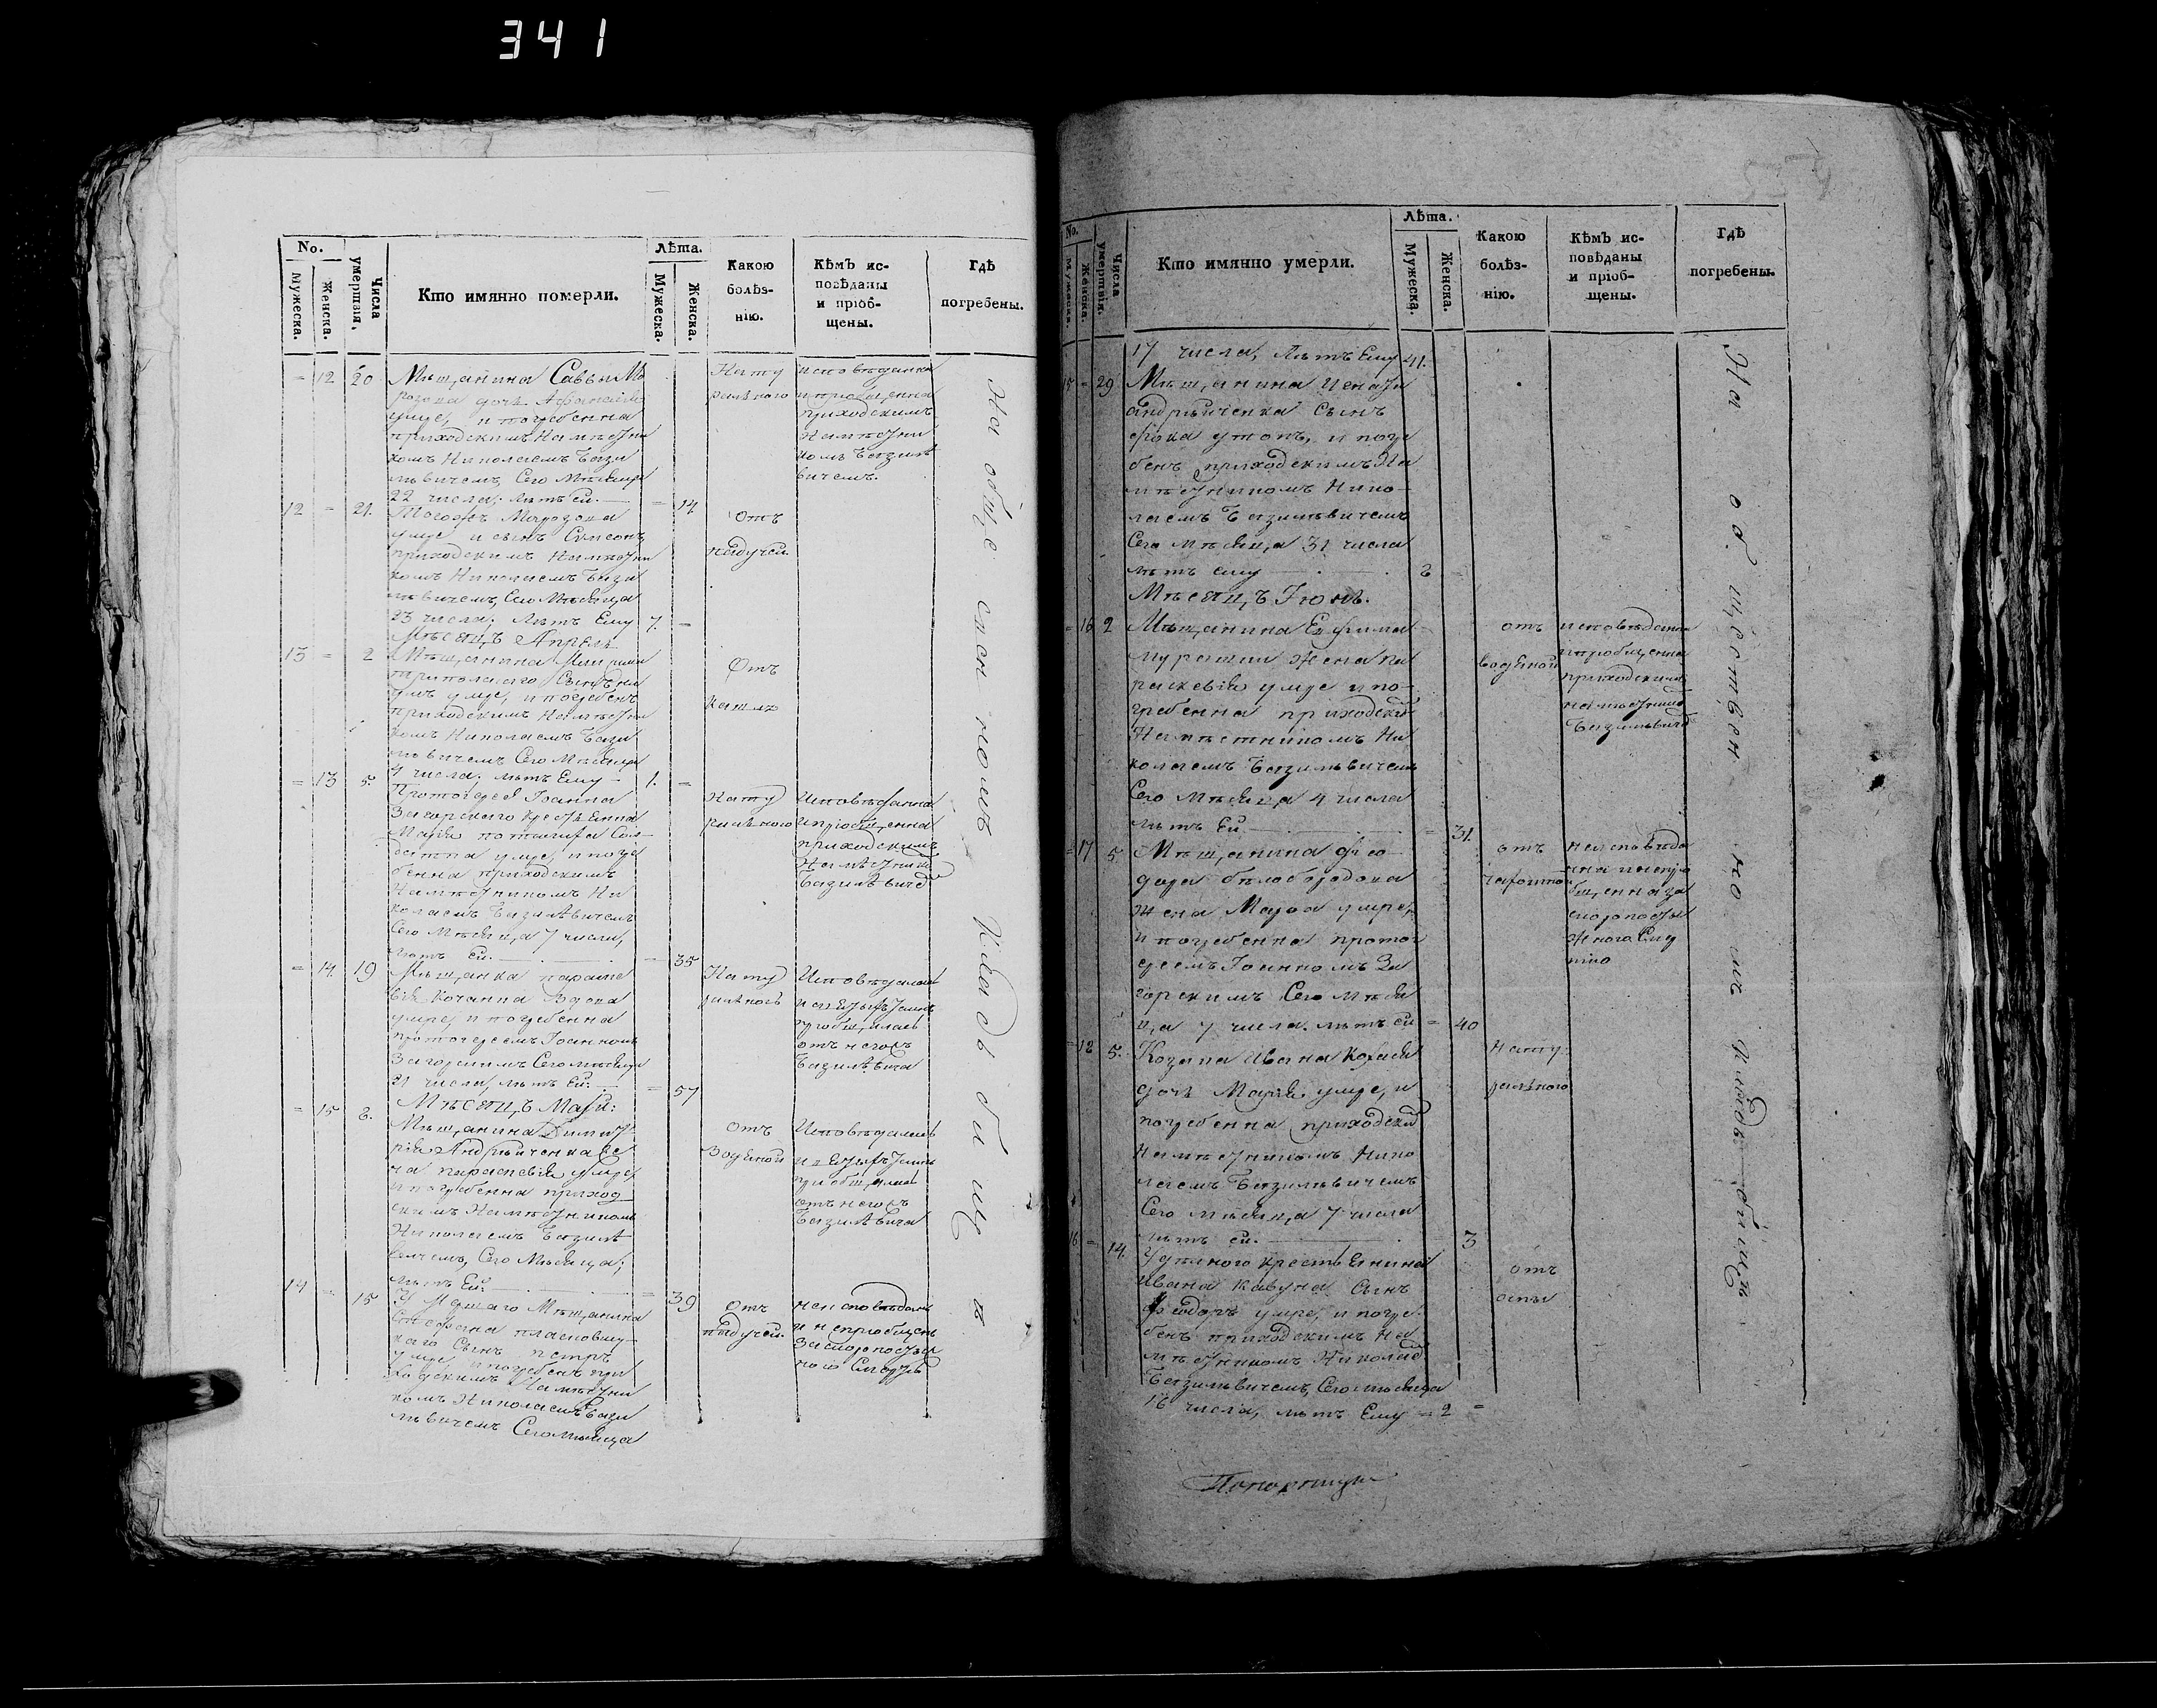 341
No.
Мужеска.
Женска.
Числа умертвія.
Кто имянно померли.
Лѣта.
Мужеска.
Женска.
Какою болѣз-
нію.
Кѣмъ ис-
повѣданы
и пріоб-
щены.
Гдѣ
погребены.
= 12 20 Мѣщанина Саввы Мо
розова дочь
умре, и погребенна
приходскимъ Намѣстни
комъ Николаемъ Бази
лѣвичемъ, Сего Мѣсяца
22 числа; лѣтъ ей. = 14
Нату
ральною
исповѣданна
и пріобщенна
приходскимъ
Намѣстни
комъ Базилѣ
вичемъ.
12 = 21. Тогожъ Морозова
умре и сынъ Симеонъ
приходскимъ Намѣстни
комъ Николаемъ Бази
лѣвичемъ, Сего Мѣсяца
23 числа; лѣтъ Ему 7. =
отъ
падучей
Мѣсяцъ Апрель
13 = 2 Мѣщанина
Сынъ
умре, и погребенъ
приходскимъ Намѣстни
комъ Николаемъ Бази
лѣвичемъ Сего Мѣсяца
4 числа; лѣтъ Ему 1. =
Отъ
кашля
= 13 5. Протоіерея Іоанна
Загорскаго крестьянка
Марія
умре, и погре
бенна приходскимъ
Намѣстникомъ Ни
колаемъ Базилѣвичемъ
Сего Мѣсяца 7 числа,
лѣтъ ей. = 35
Нату
ральною
Исповѣданна
и пріобщенна
приходскимъ
Намѣстник
Базилѣвичемъ
= 14 19 Мѣщанка Параске
вія вдова
умре, и погребенна
протоіереемъ Іоанномъ
Загорскимъ Сего мѣсяца
21 числа, лѣтъ ей. = 57
Нату
ральною
Исповѣдалась
пріобщилась
отъ негожъ
Базилѣвича
Мѣсяцъ Май:
= 15 8. Мѣщанина Димит
рія Андрѣйченка же
на параскевія умре,
и погребенна приход
скимъ Намѣстникомъ
Николаемъ Базилѣ
вичемъ, Сего Мѣсяца;
лѣтъ Ей. = 39
отъ
Водяной
Исповѣдалась
пріобщилась
отъ негожъ
Базилѣвича
14 = 15 Умершаго Мѣщанина
Стефана
Сынъ петръ
умре и погребенъ при
ходскимъ Намѣстни
комъ Николаемъ Бази
лѣвичемъ Сего Мѣсяца
отъ
падучей.
неисповѣданъ
и непріобщенъ
за скоропостиж
ною Смертію
На общественномъ Кладбищѣ
No.
Мужеска.
Женска.
Числа умертвія.
Кто имянно умерли.
Лѣта.
Мужеска.
Женска.
Какою
болѣз-
нію.
Кѣмъ ис-
повѣданы
и пріоб-
щены.
Гдѣ
погребены.
17 числа, Лѣтъ Ему 41.
15 = 29 Мѣщанина Игната
андрѣйченка Сынъ
фока утопъ, и погре
бенъ приходскимъ На
мѣстникомъ Нико-
лаемъ Базилѣвичемъ
Сего мѣсяца 31 числа
лѣтъ ему
Мѣсяцъ Іюнь.
= 16 2 Мѣщанина Ефима
жена Па
раскевія умре и по-
гребенна приходски
Намѣстникомъ Ни
колаемъ Базилѣвичемъ
Сего мѣсяца 4 числа
лѣтъ Ей. = 31.
отъ
водяной
исповѣданна
и пріобщенна
приходскимъ
намѣстник
Базилѣвич
= 17 5. Мѣщанина Фео
дора бѣлобородова
жена Марфа умре,
и погребенна протоі
ереемъ Іоанномъ За
горскимъ Сего мѣся
ца 7 числа. лѣтъ ей = 40
отъ
неисповѣда
за
скоропости
жною Смер
тію
= 18 5. Козака Ивана
дочь Марія умре, и
погребенна приходски
Намѣстникомъ Нико
лаемъ Базилѣвичемъ
Сего мѣсяца 7 числа
лѣтъ ей. 3
Нату
ральною
16 = 14. Удѣлного крестьянина
Ивана Кавуна Сынъ
Феодоръ умре, и погре
бенъ приходскимъ На
мѣстникомъ Николае
Базилѣвичемъ, Сего мѣсяца
16 числа, лѣтъ Ему = 2 =
отъ
оспы
На общественномъ кладбищѣ